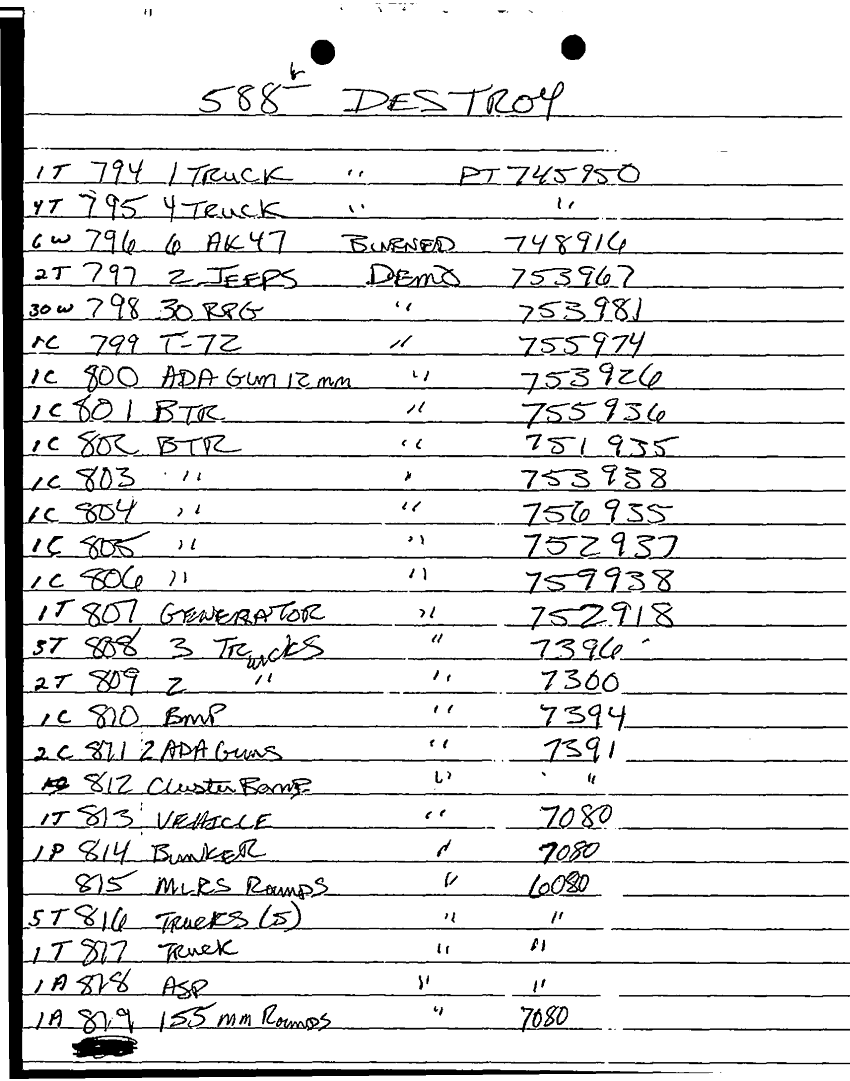 588th DESTROY
1T 794 1 TRUCK " PT 745950
4T 795 4 TRUCK " "
6W 796 6 AK47 BURNED 748916
2T 797 2 JEEPS DEMO 753967
30W 798 30 RPG " 753981
1C 799 T-72 " 755974
1C 800 ADA GUN 12 mm " 753926
1C 801 BTR " 755936
1C 802 BTR " 751935
1C 803 " " 753938
1C 804 " " 756935
1C 805 " " 752937
1C 806 " " 759938
1T 807 GENERATOR " 752918
3T 808 3 TRucks " 7396
2T 809 2 " " 7360
1C 810 BmP " 7394
2C 811 2 ADA Guns " 7391
812 Cluster Bomb " "
1T 813 VEHICLE " 7080
1P 814 BunKER " 7080
815 MLRS Rounds " 6080
5T 816 TRucKS (5) " "
1T 817 Truck " "
1A 818 ASP " "
1A 819 155 mm Rounds " 7080